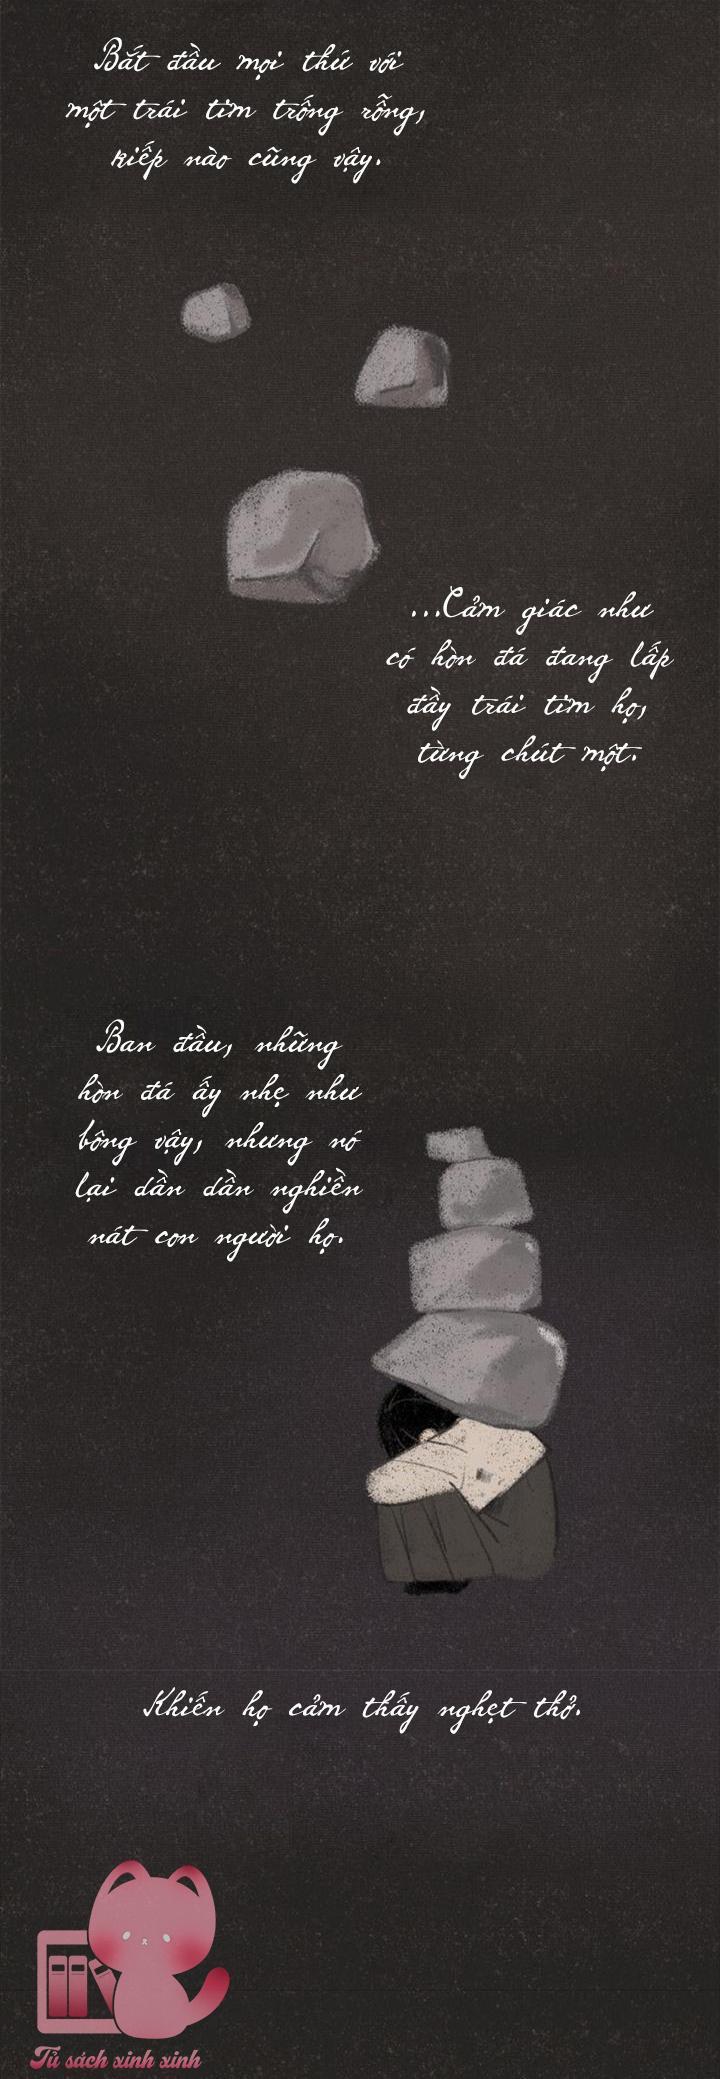 Bắt đầu mọi thứ với
một trái tim trống rỗng,
kiếp nào cũng vậy.
...Cảm giác như
có hòn đá đang lấp
đầy trái tim họ,
từng chút một.
Ban đầu, những
hòn đá ấy nhẹ như
bông vậy, nhưng nó
lại dần dần nghiền
nát con người họ.
Khiến họ cảm thấy nghẹt thở.
Tủ sách xinh xinh